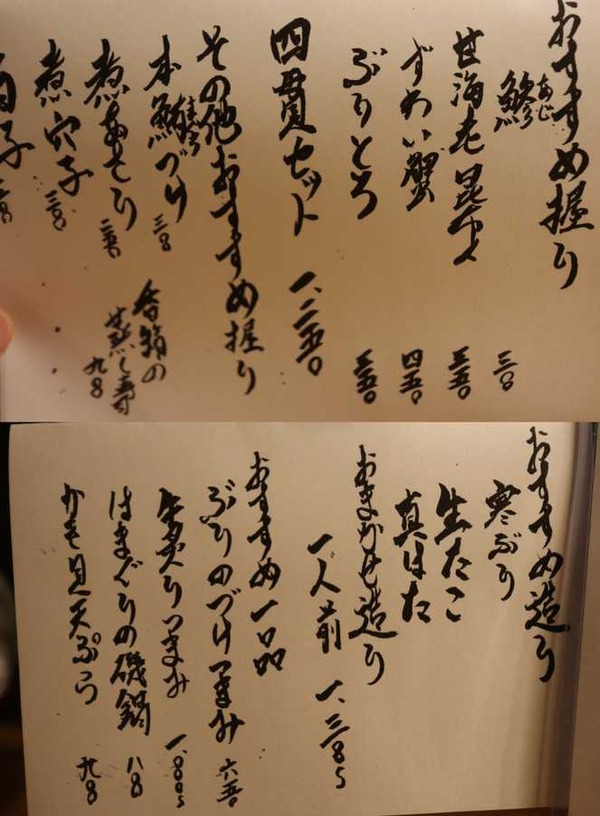 おすすめ握り
鰺 あじ 三〇〇
甘海老昆〆 三五〇
ずわい蟹 四五〇
ぶりとろ 三五〇
四貫セット 一、二五〇
その他おすすめ握り
本鮪づけ 三〇〇
煮あさり 二五〇
煮穴子 三〇〇
香箱の
蒸し寿 九〇〇
おすすめ造り
寒ぶり
生たこ
真はた
おまかせ造り
一人前 一、三〇〇より
おすすめ一品
ぶりのづけつまみ 六五〇
炙りつまみ
はまぐりの磯鍋 八〇〇
かき見天ぷら 九〇〇